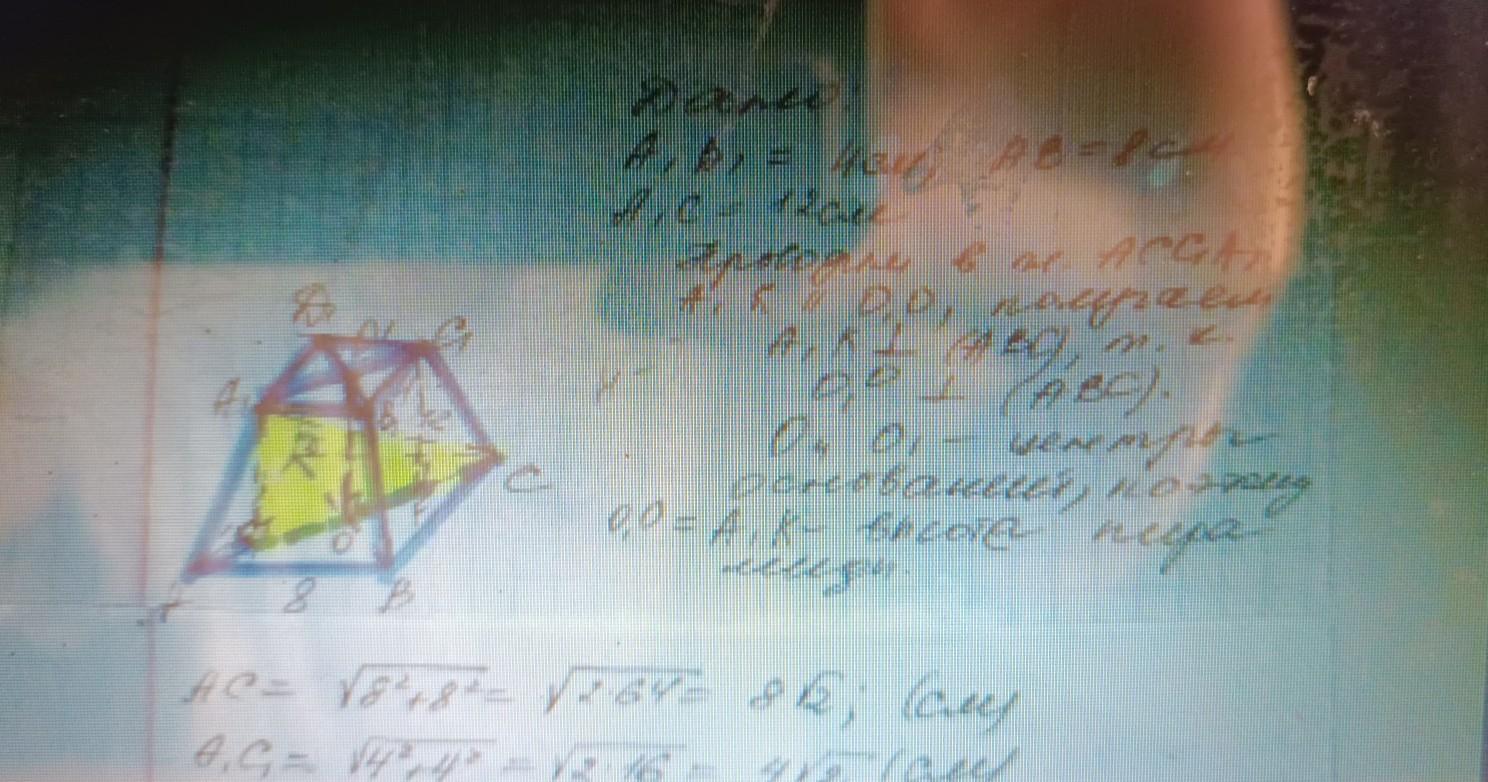 Дано:
A₁B₁ = 4см; AB = 8см
A₁C = 12см
Проводим в пл. ACC₁A₁
A₁K || O₁O, получаем
A₁K ⊥ (ABC), т.к.
O₁O ⊥ (ABC).
O и O₁ – центры
оснований, поэтому
O₁O = A₁K – высота пира
миды.
D₁ O₁ C₁
A₁ B₁
12
K O C
A 8 B
AC = √8²+8² = √2·64 = 8√2; (см)
A₁C₁ = √4²+4² = √2·16 = 4√2 (см)